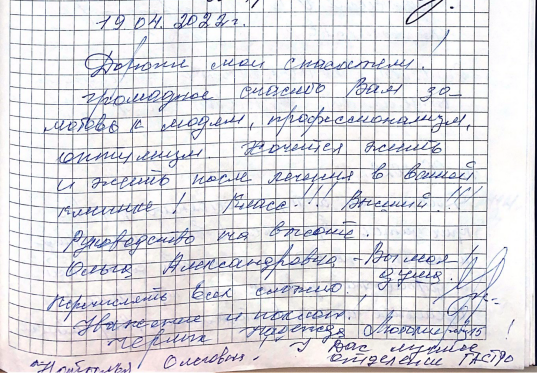 19.04.2022г.
Дорогие мои спасатели!
Громадное спасибо Вам за
любовь к людям, профессионализм,
оптимизм. Хочется жить
и жить после лечения в вашей
клинике! Класс!!! Высший!!!
Руководство на высоте.
Ольга Александровна - Вы моя
душа!
Перечислять всех сложно.
Уважение и поклон.
Надежда
У Вас лучшее
Наталья Олеговна.
отделение ГАСТРО